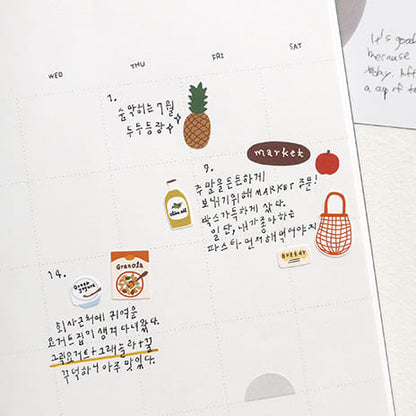 WED THU FRI SAT
It's good
because
today. Aff
a cup of t
1.
숨막히는 7월
두두등장
market
9.
주말을 든든하게
보내기 위해 MARKET 주문!
박스가득하게 샀다.
일단, 내가 좋아하는
파스타 먼저 해먹어야지
olive oil
BUTTER
14.
Greek
yogurt
Granola
회사근처에 귀여운
요거트집이 생겨 다녀왔다.
그릭요거트+그래놀라+꿀
꾸덕하니 아주 맛있다.